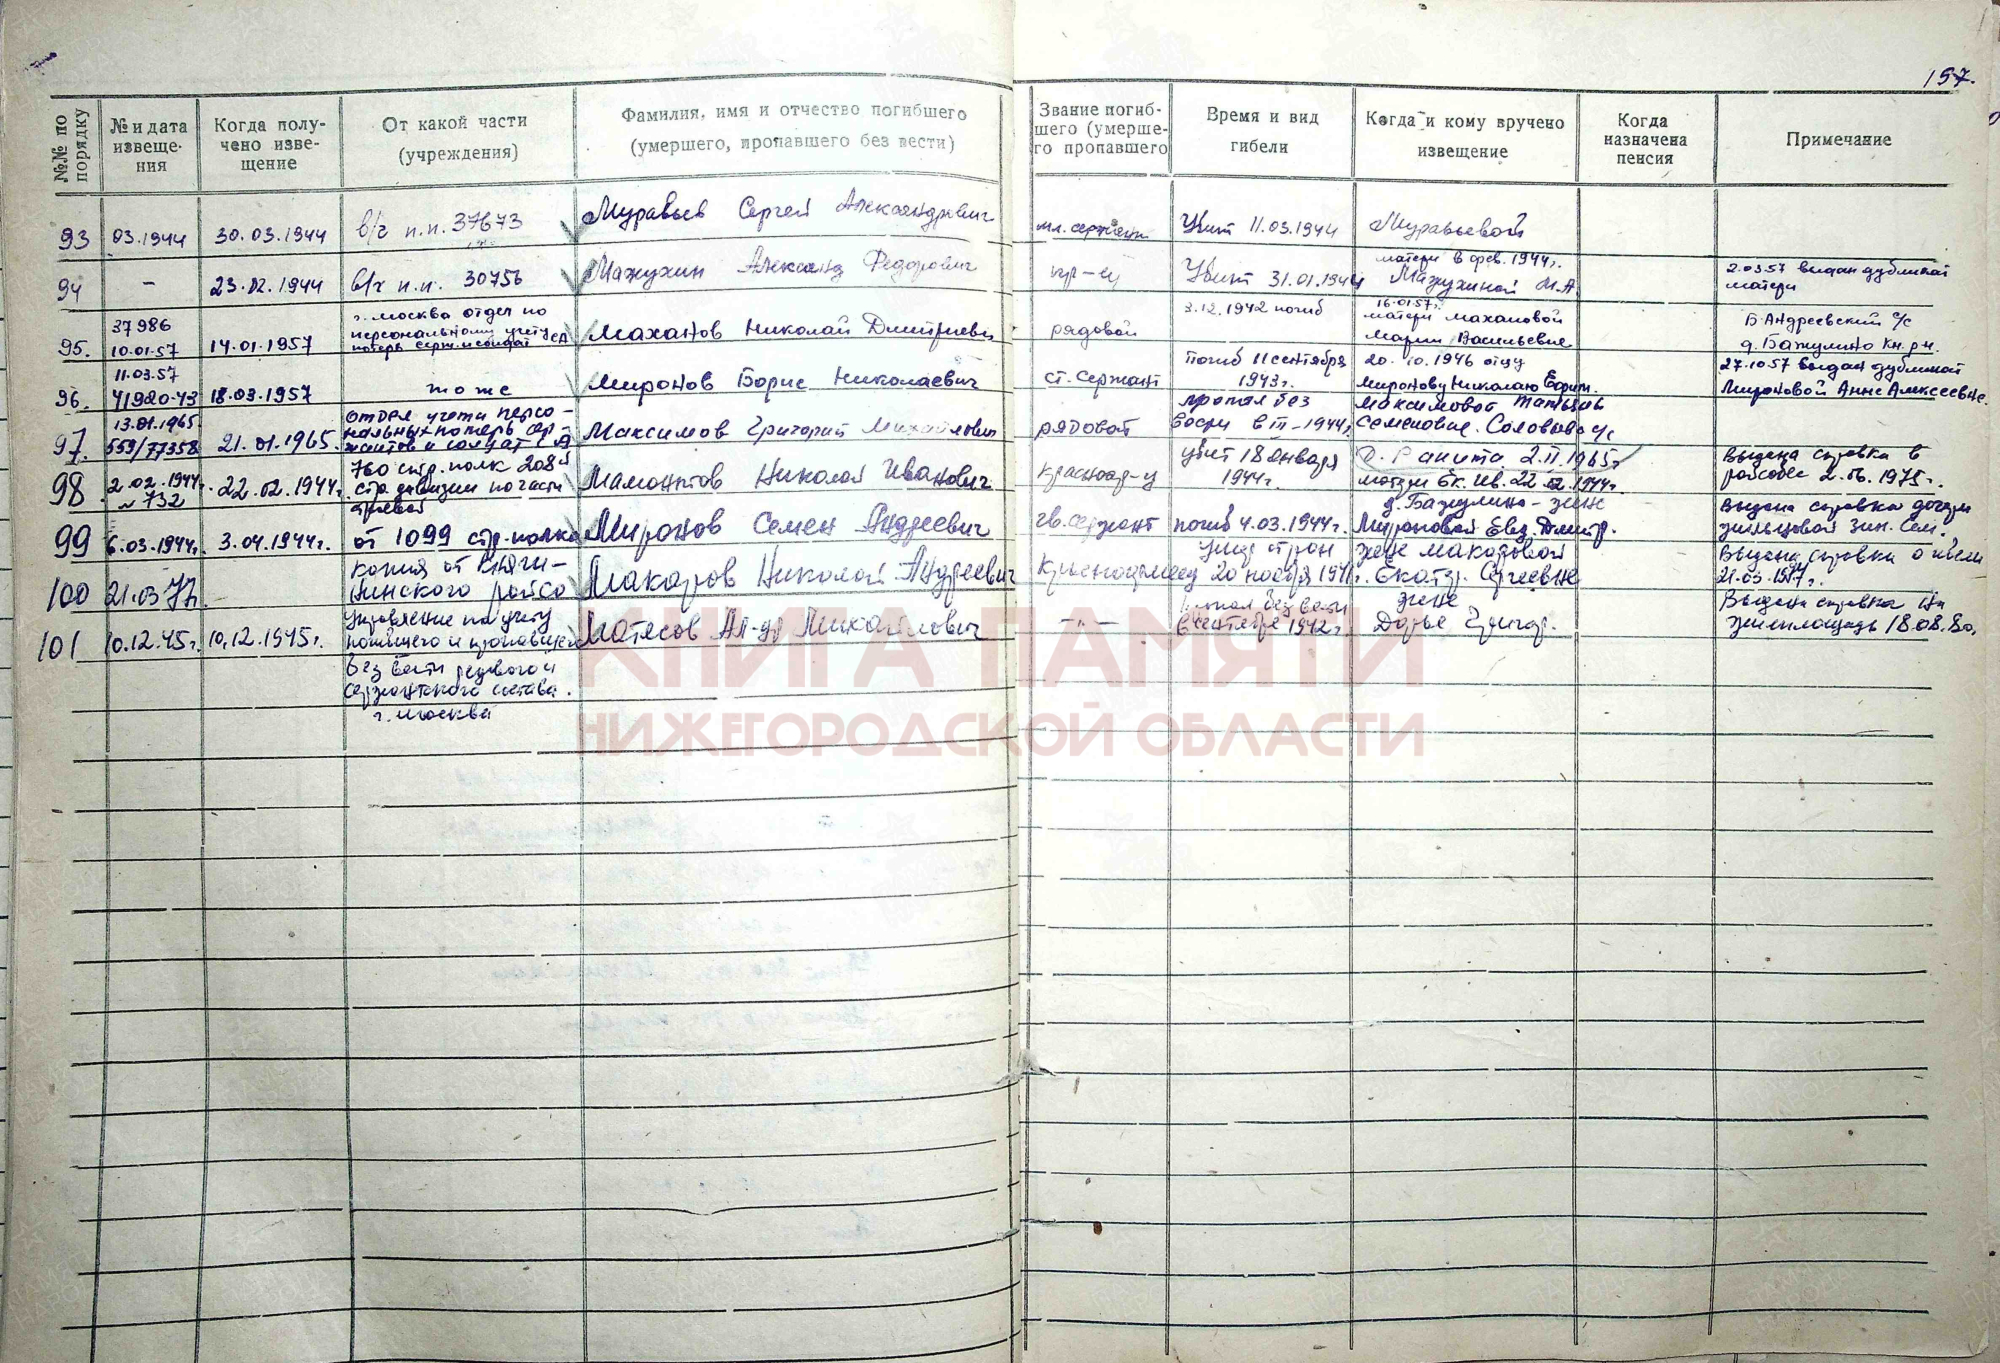 157.
№№ по порядку
№ и дата извеще- ния
Когда полу- чено изве- щение
От какой части (учреждения)
Фамилия, имя и отчество погибшего (умершего, пропавшего без вести)
Звание погиб- шего (умерше- го пропавшего
Время и вид гибели
Когда и кому вручено извещение
Когда назначена пенсия
Примечание
93 03.1944 30.03.1944 в/ч п.п. 37673 Муравьев Сергей Александрович мл. сержант Убит 11.03.1944 Муравьевой
94 - 23.02.1944 в/ч п.п. 30756 Мажухин Александ Федорович кр-ец Убит 31.01.1944 матери в фев. 1944г. Мажухиной М.А. 2.03.57 выдан дубликат матери
95. 37986 10.01.57 14.01.1957 г. Москва отдел по персональному учету потерь серж. и солдат СА Маханов Николай Дмитриевич рядовой 3.12.1942 погиб 16.01.57г. матери Махановой Марии Васильевне Б. Андреевский с/с д. Бажулино Кн. р-н.
96. 11.03.57 41920-43 18.03.1957 то же Миронов Борис Николаевич ст. сержант погиб 11 сентября 1943г. 20.10.1946 отцу Миронову Николаю Ефим. 27.10.57 выдан дубликат Мироновой Анне Алексеевне.
97. 13.01.1965. 559/77358 21.01.1965. отдел учета персо- нальных потерь сер- жантов и солдат СА Максимов Григорий Михайлович рядовой пропал без вести в III-1944г. Максимовой Татьяне Семеновне. Соловьевс/с д. Ракита 2.II.1965г
98 2.02.1944г. №732 22.02.1944г. 760 стр. полк 208й стр. дивизии по части Мамонтов Николай Иванович Красноар-ц убит 18 января 1944г. матери Ек. Ив. 22.02.1944г. д. Бажулино Выдана справка в райсобес 2.06.1975г.
99 6.03.1944г. 3.04.1944г. от 1099 стр. полка Миронов Семен Андреевич гв. сержант погиб 4.03.1944г. жене Мироновой Евд. Дмитр. Выдана справка дочери Зин. Сем.
100 21.03.77г. копия от Княги- нинского райсо Макаров Николай Андреевич Красноармеец 20 ноября 1941г. жене Макаровой Екатер. Сергеевне Выдана справка о гибели 21.03.1977г.
101 10.12.45г. 10.12.1945г. Управление по учету погибшего и пропавшего без вести рядового и сержантского состава. г. Москва Матясов Ал-др Михайлович -"- пропал без вести в сентябре 1942г. жене Дарье Григор. Выдана справка на жилплощадь 18.08.80.
КНИГА ПАМЯТИ
НИЖЕГОРОДСКОЙ ОБЛАСТИ